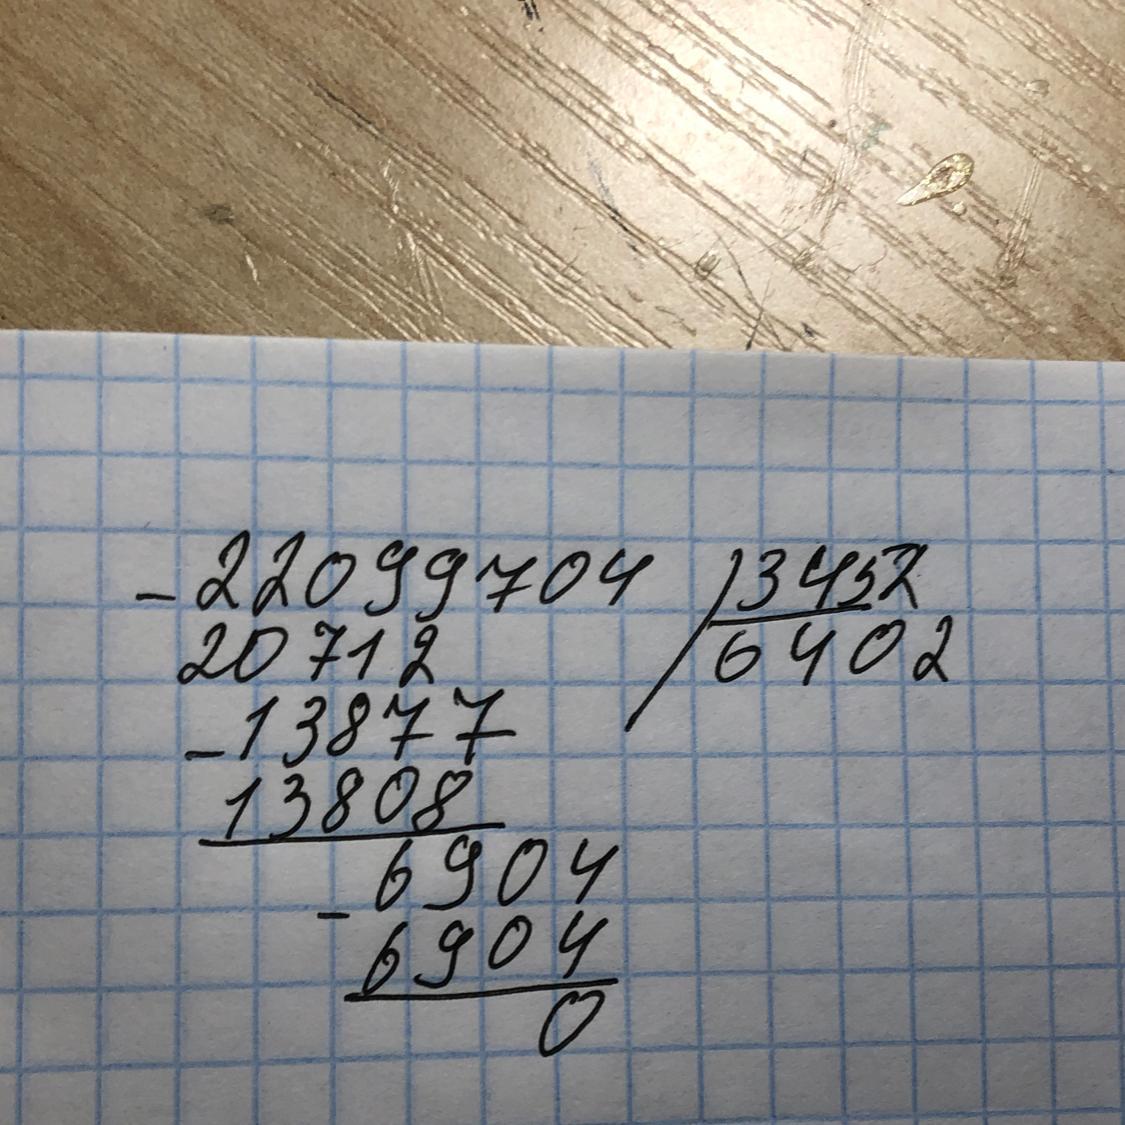 -22099704 | 3452
20712 6402
-13877
13808
-6904
6904
0